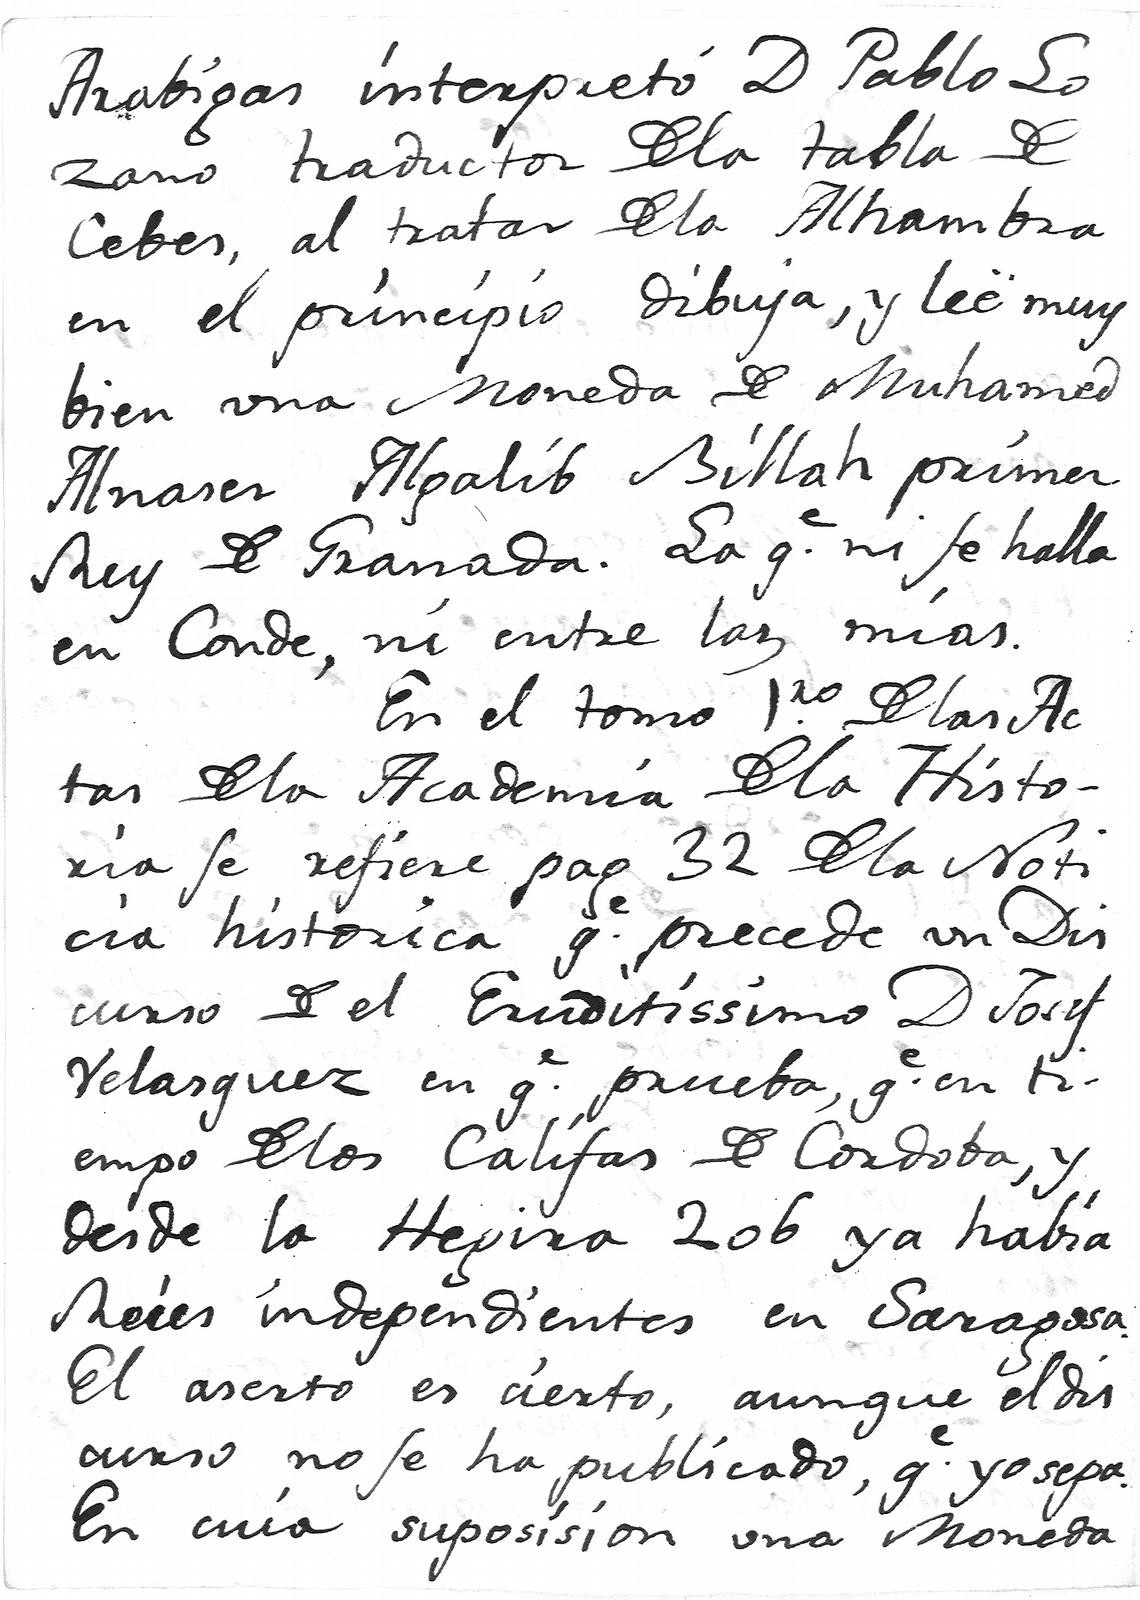 Arabigas interpretó D Pablo Lo
zano traductor Dela tabla De
Cebes, al tratar Dela Alhambra
en el principio dibuja, y leë muy
bien vna Moneda De Muhamed
Alnaser Algalib Billah primer
Rey De Granada. La q.e ni se halla
en Conde, ni entre las mias.
En el tomo 1.ro Delas Ac
tas Dela Academia Dela Histo-
ria se refiere pag 32 Dela Noti
cia historica q.e precede vn Dis
curso De el Eruditissimo D Josef
Velasquez en q.e prueba, q.e en ti-
empo Delos Califas De Cordoba, y
desde la Hegira 206 ya habia
Reies independientes en Saragosa.
El aserto es cierto, aunque el dis
curso no se ha publicado, q.e yo sepa.
En cuia suposision vna Moneda